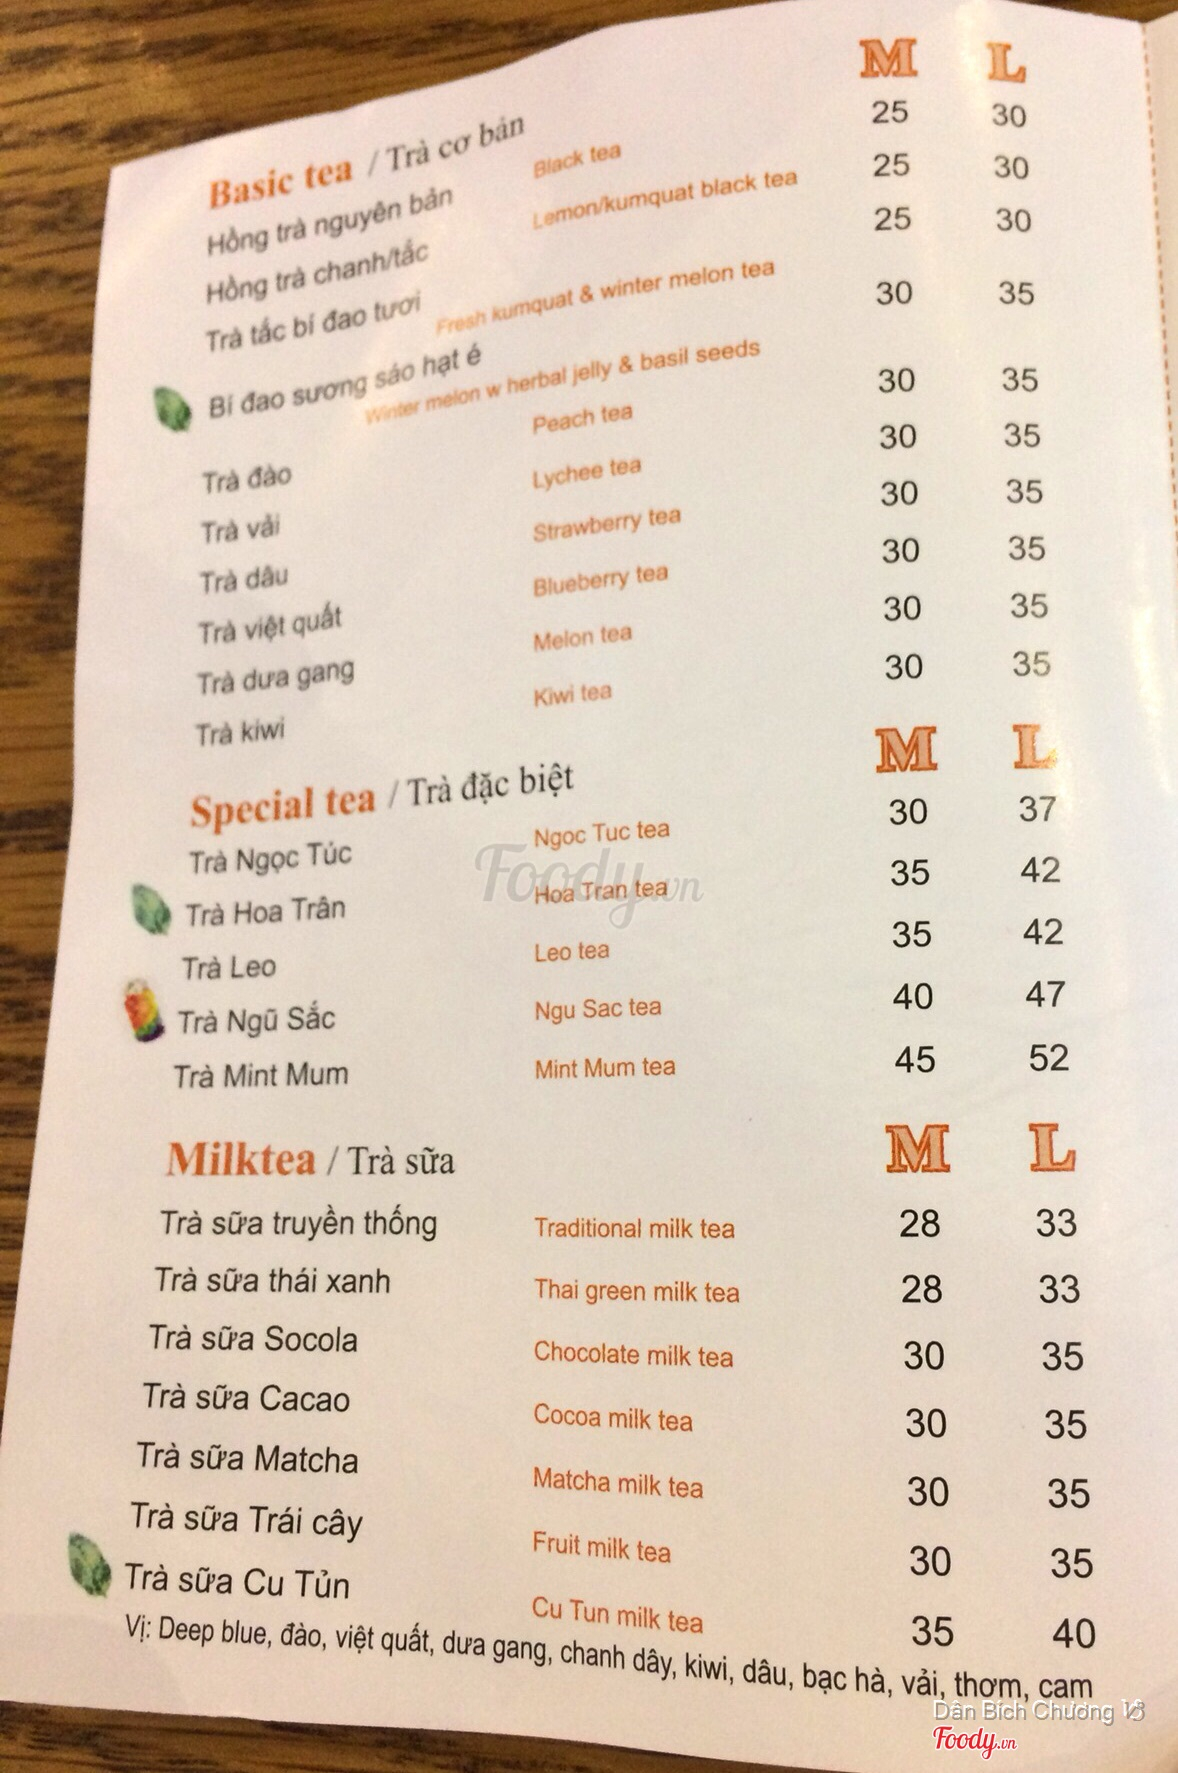 M L
Basic tea / Trà cơ bản 25 30
Hồng trà nguyên bản Black tea 25 30
Hồng trà chanh/tắc Lemon/kumquat black tea 25 30
Trà tắc bí đao tươi Fresh kumquat & winter melon tea 30 35
Bí đao sương sáo hạt é
Winter melon w herbal jelly & basil seeds 30 35
Trà đào Peach tea 30 35
Trà vải Lychee tea 30 35
Trà dâu Strawberry tea 30 35
Trà việt quất Blueberry tea 30 35
Trà dưa gang Melon tea 30 35
Trà kiwi Kiwi tea
Special tea / Trà đặc biệt M L
Trà Ngọc Túc Ngoc Tuc tea 30 37
Trà Hoa Trân Hoa Tran tea 35 42
Trà Leo Leo tea 35 42
Trà Ngũ Sắc Ngu Sac tea 40 47
Trà Mint Mum Mint Mum tea 45 52
Milktea / Trà sữa M L
Trà sữa truyền thống Traditional milk tea 28 33
Trà sữa thái xanh Thai green milk tea 28 33
Trà sữa Socola Chocolate milk tea 30 35
Trà sữa Cacao Cocoa milk tea 30 35
Trà sữa Matcha Matcha milk tea 30 35
Trà sữa Trái cây Fruit milk tea 30 35
Trà sữa Cu Tủn Cu Tun milk tea 35 40
Vị: Deep blue, đào, việt quất, dưa gang, chanh dây, kiwi, dâu, bạc hà, vải, thơm, cam
Foody.vn
Dân Bích Chương
Foody.vn